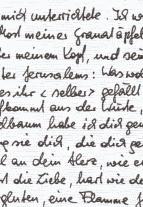 mich unterrichtete. Ich w
Most meiner Granatäpfel
er meinem Kopf, und sein
ter Jerusalems: Was wol
es ihr < selber > gefällt
fkommt aus der Wüste,
lbaum habe ich dich ge
ng sie dich, die dich ge
l an dein Herz, wie ei
t die Liebe, hart wie de
gluten, eine Flamme